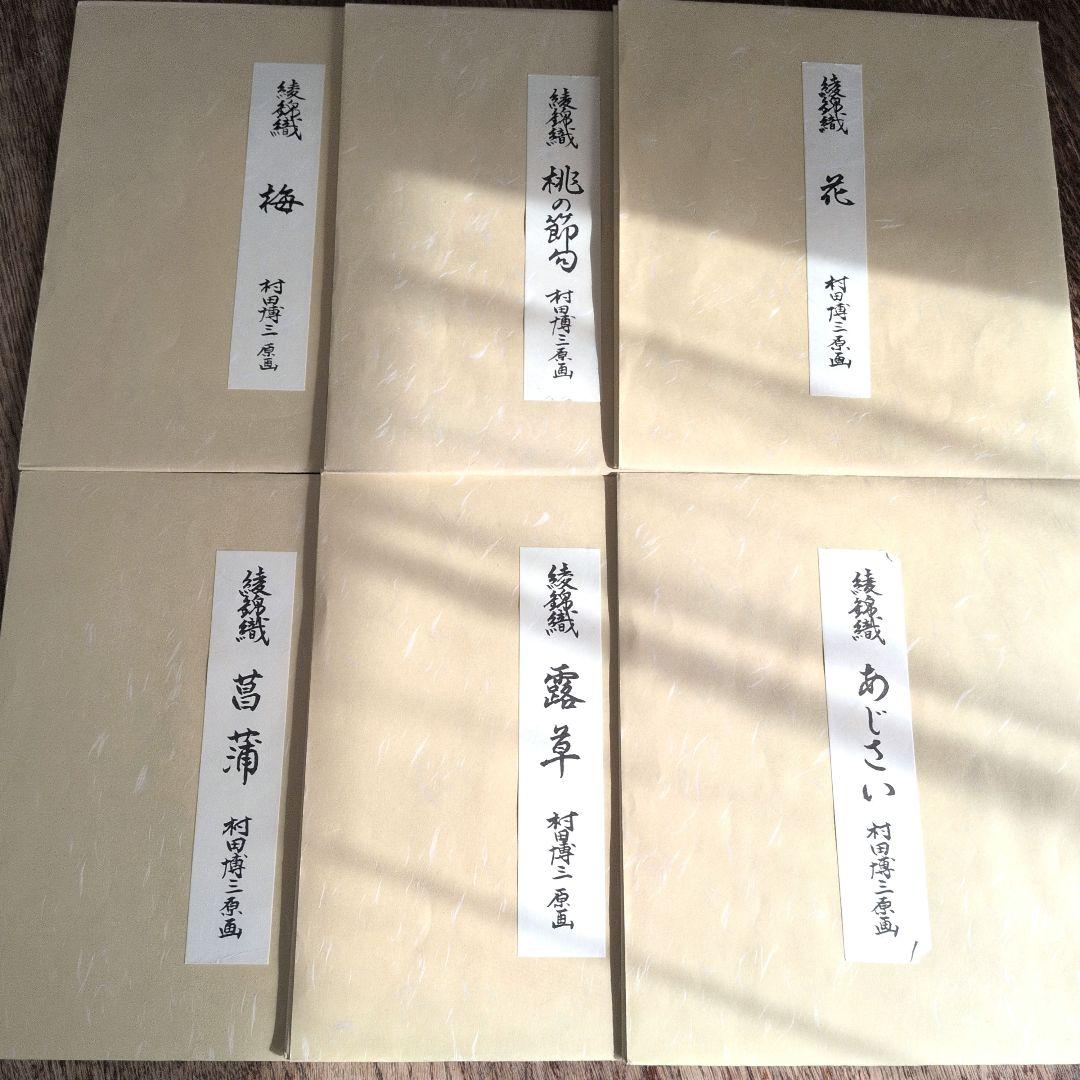 綾錦織 梅 村田博三原画
綾錦織 桃の節句 村田博三原画
綾錦織 花 村田博三原画
綾錦織 菖蒲 村田博三原画
綾錦織 露草 村田博三原画
綾錦織 あじさい 村田博三原画